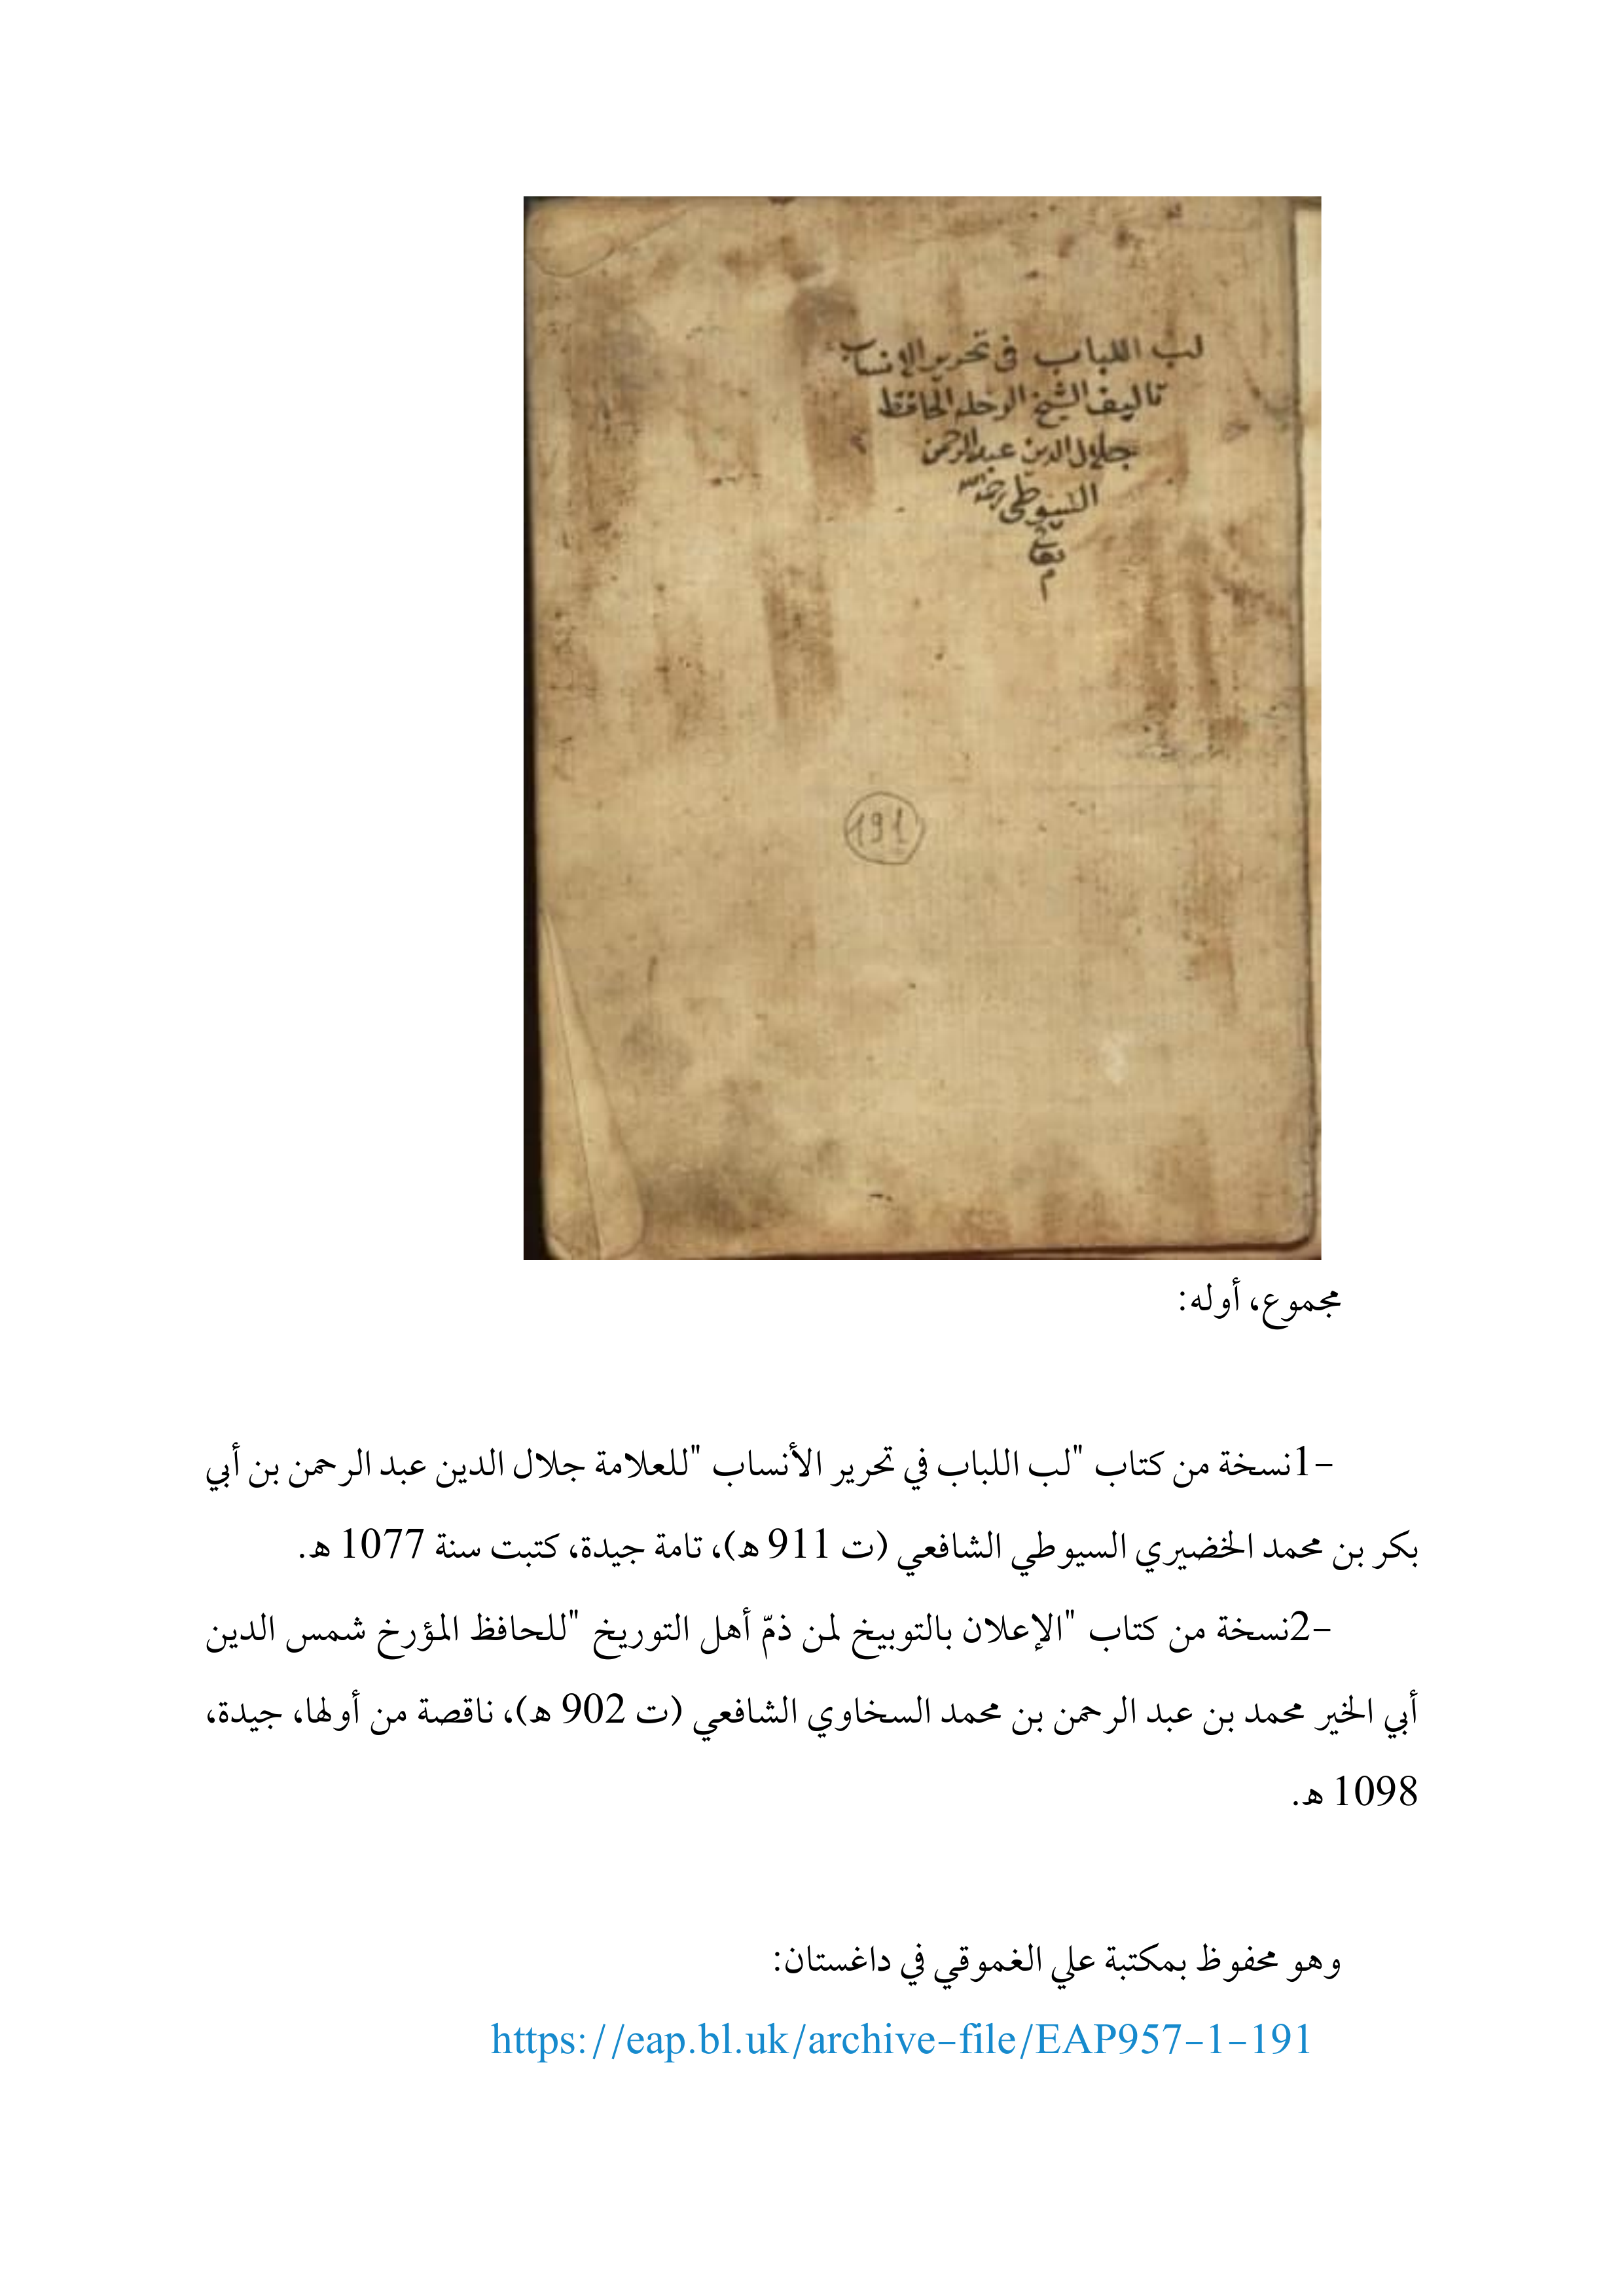 لب اللباب في تحرير الانساب
تاليف الشيخ الحافظ
جلال الدين عبد الرحمن
السيوطي رحمه الله
تعالى
م
191
مجموع، أوله:
1-نسخة من كتاب "لب اللباب في تحرير الأنساب "للعلامة جلال الدين عبد الرحمن بن أبي
بكر بن محمد الخضيري السيوطي الشافعي (ت 911 هـ)، تامة جيدة، كتبت سنة 1077 هـ.
2-نسخة من كتاب "الإعلان بالتوبيخ لمن ذمّ أهل التوريخ "للحافظ المؤرخ شمس الدين
أبي الخير محمد بن عبد الرحمن بن محمد السخاوي الشافعي (ت 902 هـ)، ناقصة من أولها، جيدة،
1098 هـ.
وهو محفوظ بمكتبة علي الغموقي في داغستان:
https://eap.bl.uk/archive-file/EAP957-1-191